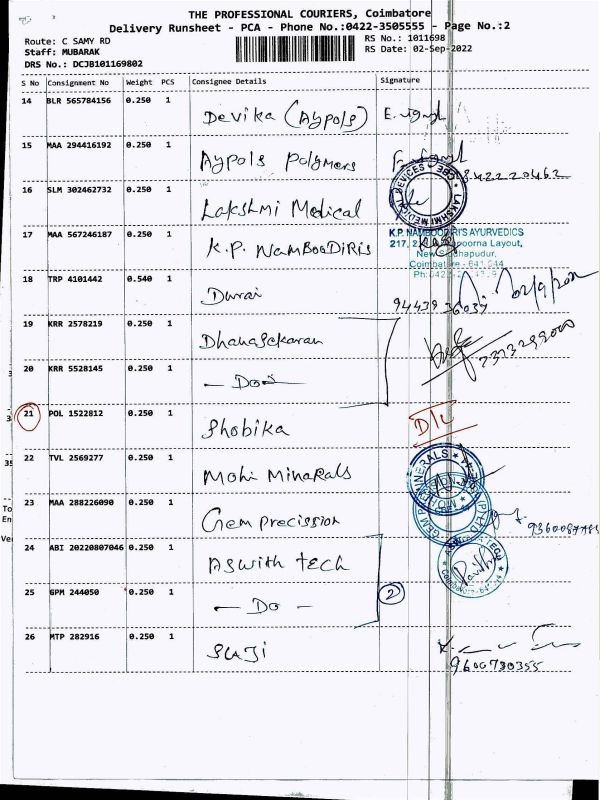 THE PROFESSIONAL COURIERS, Coimbatore
Delivery Runsheet - PCA - Phone No.:0422-3505555 - Page No.:2
Route: C SAMY RD
RS No.: 1011698
Staff: MUBARAK
RS Date: 02-Sep-2022
DRS No.: DCJB101169802
S No Consignment No Weight PCS Consignee Details Signature
14 BLR 565784156 0.250 1 Devika (Aypols)
15 MAA 294416192 0.250 1 Aypols Polymers
8422220462
16 SLM 302462732 0.250 1 Lakshmi Medical
LAKSHMI MEDICAL DEVICES CBE
17 MAA 567246187 0.250 1 K.P. NAMBOODIRIS
K.P. NAMBOODIRI'S AYURVEDICS
Layout,
Coimbatore - 641 044
18 TRP 4101442 0.540 1 Durai
02/9/2022
19 KRR 2578219 0.250 1 Dhanasekaran
20 KRR 5528145 0.250 1 - Do -
21 POL 1522812 0.250 1 Shobika D/L
22 TVL 2569277 0.250 1 Mohi Minarals
23 MAA 288226090 0.250 1 Gem precission
24 ABI 20220807046 0.250 1 Aswith tech
25 GPM 244050 0.250 1 - Do - 2
26 MTP 282916 0.250 1 Suji
9600780355